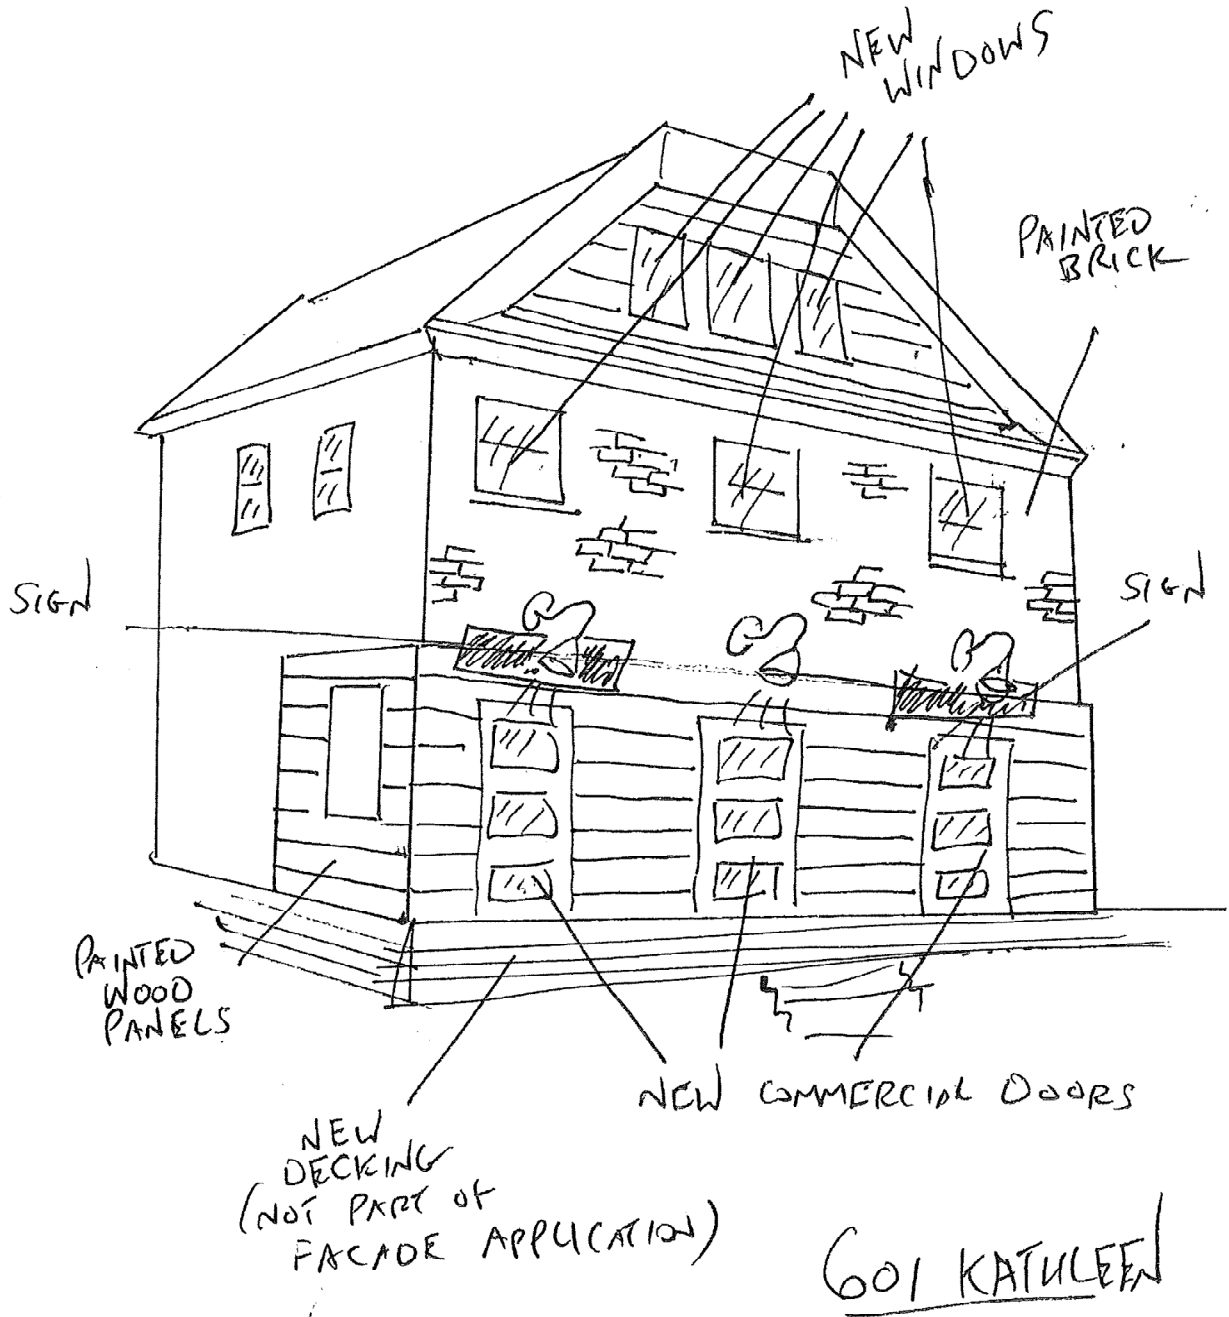 NEW
WINDOWS
PAINTED
BRICK
SIGN
SIGN
PAINTED
WOOD
PANELS
NEW COMMERCIAL DOORS
NEW
DECKING
(NOT PART OF
FACADE APPLICATION)
601 KATHLEEN